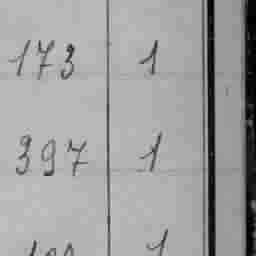 173 1
397 1
1